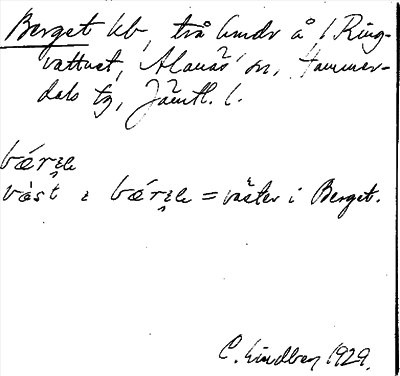 Berget kb, två hmdr å 1 Ring-
vattnet, Alanäs sn, Hammer-
dals tg, Jämtl. l.
bǽrɟe
våst ɪ bǽrɟe = väster i Berget.
C. Lindberg 1929.